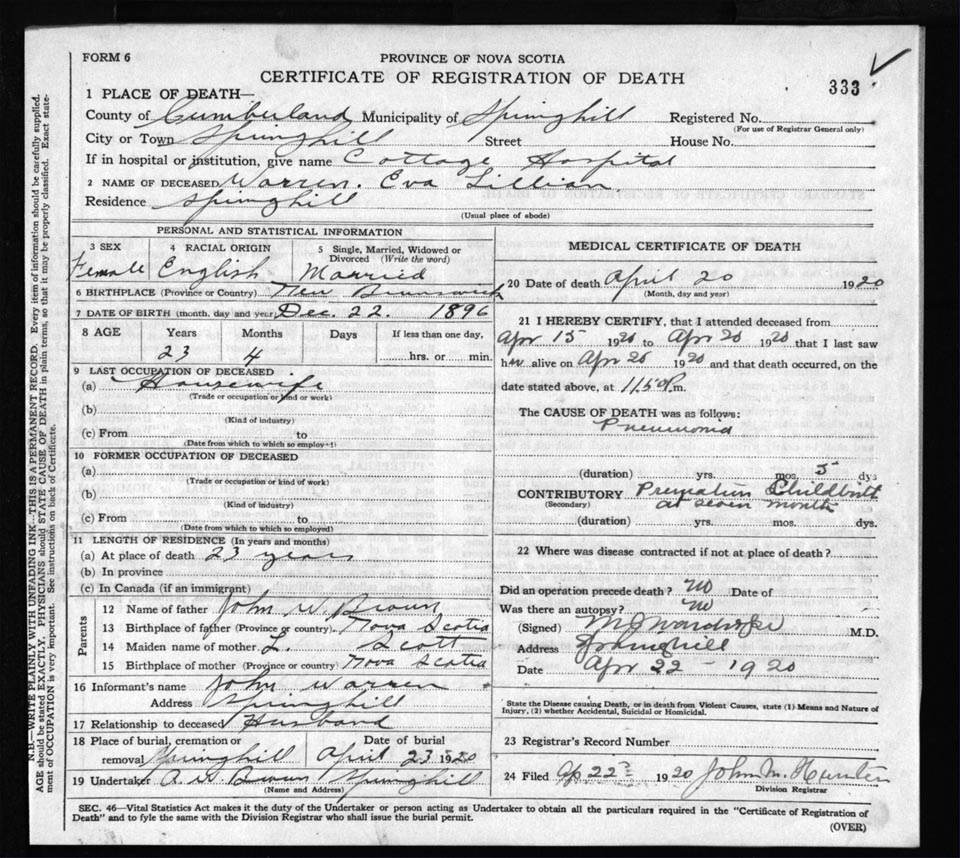 FORM 6
PROVINCE OF NOVA SCOTIA
CERTIFICATE OF REGISTRATION OF DEATH
333
1 PLACE OF DEATH—
County of Cumberland Municipality of Springhill Registered No.
(For use of Registrar General only)
City or Town Springhill Street House No.
If in hospital or institution, give name Cottage Hospital
2 NAME OF DECEASED Warren. Eva Lillian.
Residence Springhill
(Usual place of abode)
PERSONAL AND STATISTICAL INFORMATION
3 SEX 4 RACIAL ORIGIN 5 Single, Married, Widowed or Divorced (Write the word)
Female English Married
6 BIRTHPLACE (Province or Country) New Brunswick
7 DATE OF BIRTH (month, day and year) Dec. 22. 1896
8 AGE Years Months Days If less than one day,
23 4 hrs. or min.
9 LAST OCCUPATION OF DECEASED
(a) Housewife
(Trade or occupation or kind or work)
(b)
(Kind of industry)
(c) From to
(Date from which to which so employed)
10 FORMER OCCUPATION OF DECEASED
(a)
(Trade or occupation or kind of work)
(b)
(Kind of industry)
(c) From to
(Date from which to which so employed)
11 LENGTH OF RESIDENCE (In years and months)
(a) At place of death 23 years
(b) In province
(c) In Canada (if an immigrant)
Parents
12 Name of father John W. Brown
13 Birthplace of father (Province or country) Nova Scotia
14 Maiden name of mother L. Scott
15 Birthplace of mother (Province or country) Nova Scotia
16 Informant's name John Warren
Address Springhill
17 Relationship to deceased Husband
18 Place of burial, cremation or removal Springhill Date of burial April 23 1920
19 Undertaker A. Brown Springhill
(Name and Address)
MEDICAL CERTIFICATE OF DEATH
20 Date of death April 20 1920
(Month, day and year)
21 I HEREBY CERTIFY, that I attended deceased from
Apr 15 1920 to Apr 20 1920 that I last saw
her alive on Apr 20 1920 and that death occurred, on the
date stated above, at m.
The CAUSE OF DEATH was as follows:
Pneumonia
(duration) yrs. mos. 5 dys
CONTRIBUTORY Premature Childbirth
(Secondary) at seven months
(duration) yrs. mos. dys.
22 Where was disease contracted if not at place of death?
Did an operation precede death? No Date of
Was there an autopsy? no
(Signed) M.D.
Address Springhill
Date Apr 22 - 1920
State the Disease causing Death, or in death from Violent Causes, state (1) Means and Nature of
Injury, (2) whether Accidental, Suicidal or Homicidal.
23 Registrar's Record Number
24 Filed Ap 22nd 1920 John M. Hunter
Division Registrar
SEC. 46—Vital Statistics Act makes it the duty of the Undertaker or person acting as Undertaker to obtain all the particulars required in the "Certificate of Registration of
Death" and to fyle the same with the Division Registrar who shall issue the burial permit.
(OVER)
N.B.—WRITE PLAINLY WITH UNFADING INK—THIS IS A PERMANENT RECORD. Every item of information should be carefully supplied.
AGE should be stated EXACTLY. PHYSICIANS should STATE CAUSE OF DEATH in plain terms, so that it may be properly classified. Exact statement of OCCUPATION is very important. See instructions on back of Certificate.